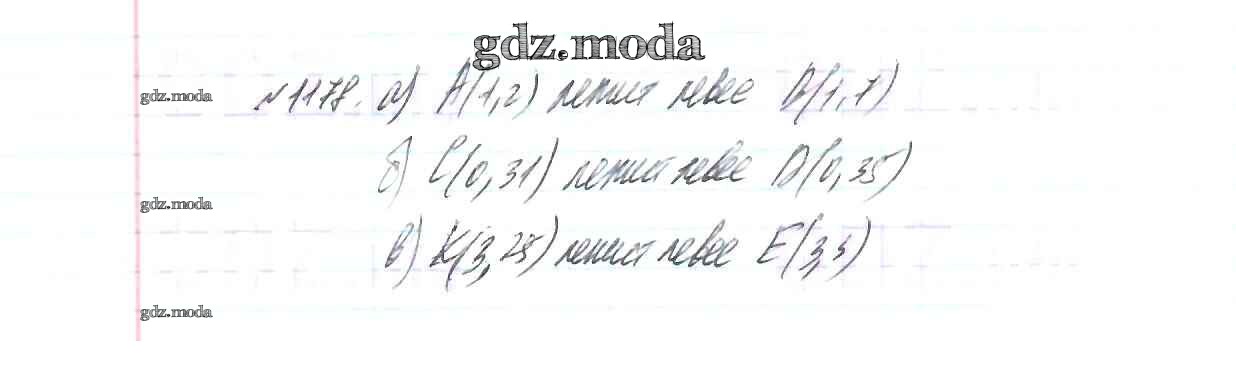 gdz.moda
gdz.moda
№1178. а) A(1,2) лежит левее B(1,7)
б) C(0,31) лежит левее D(0,35)
gdz.moda
в) K(3,28) лежит левее E(3,3)
gdz.moda